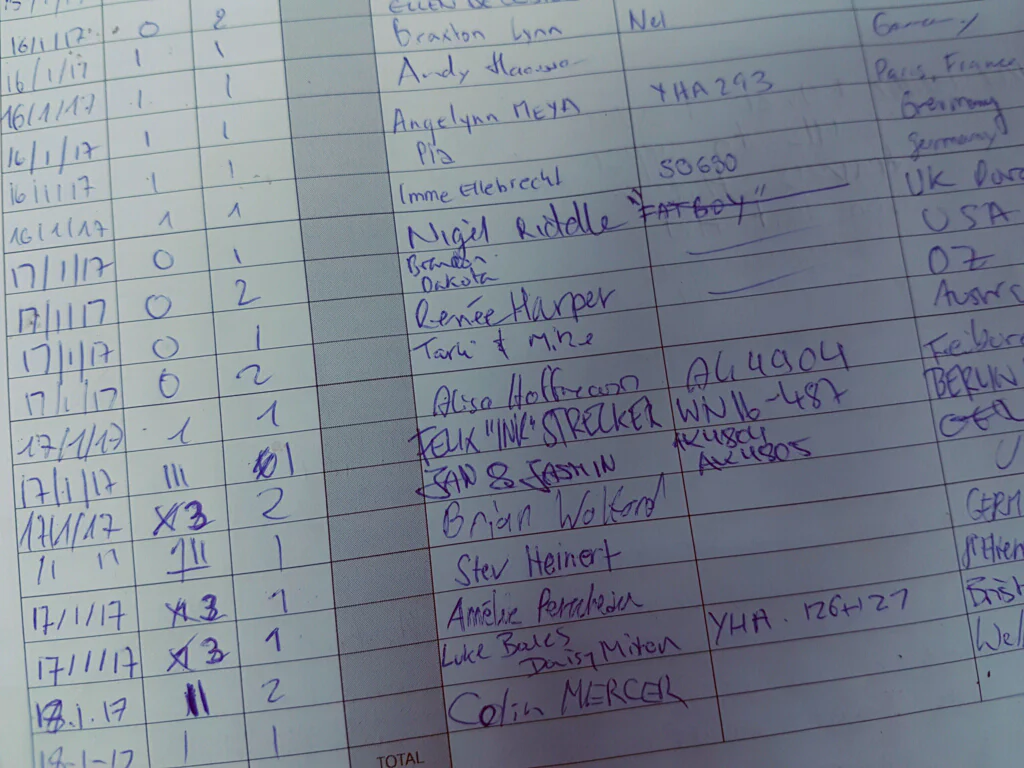 16/1/17 0 2
16/1/17 1 1 Braxton Lynn Nel
16/1/17 1 1 Andy Germany
16/1/17 1 1 Angelynn MEYA YHA 293 Paris, France
16/1/17 1 1 Pia Germany
16/1/17 1 1 Imme Ellebrecht SO630 Germany
17/1/17 0 1 Nigel Riddle "FATBOY" UK
17/1/17 0 2 Brandon
Dakota USA
17/1/17 0 1 Renée Harper OZ
17/1/17 0 2 Tarli & Mike
17/1/17 1 1 Alisa Hoffmann AK4904
17/1/17 III 1 FELIX "INK" STRECKER WN16-487 BERLIN
17/1/17 x3 2 JAN & JASMIN AK4804
AK4805 GER
11 11 III 1 Brian Walford U
17/1/17 x3 1 Stev Heinert GERM
17/1/17 x3 1 Amélie
18.1.17 II 2 Luke Bowes
Daisy Miton YHA. 126+127 Brist
18-1-17 1 1 Colin MERCER Wel
TOTAL